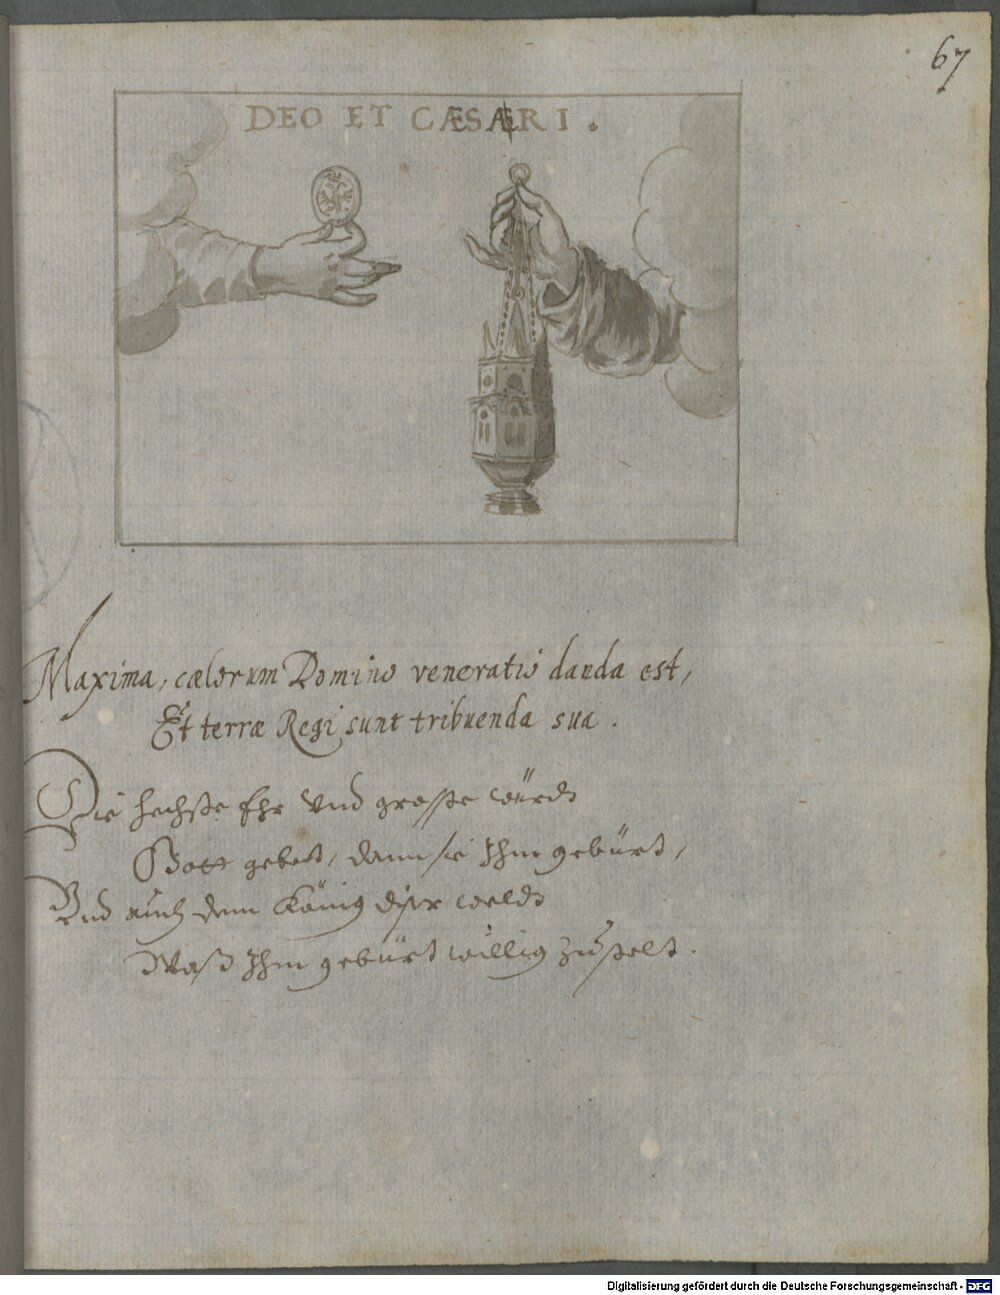 67
DEO ET CÆSARI.
Maxima, cælorum Domino veneratio danda est,
Et terræ Regi sunt tribuenda sua.
Die hechste Ehr Vnd grosse würde
Gott gebest, dann sie Ihm gebürt,
Vnd auch dem König diser weldt
Waß Ihm gebürt willig zustelt.
Digitalisierung gefördert durch die Deutsche Forschungsgemeinschaft - DFG